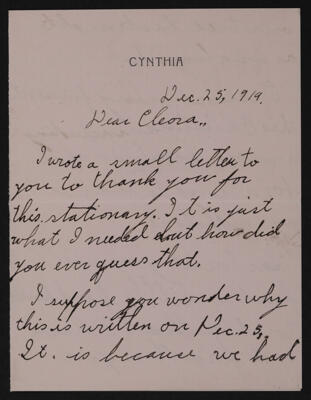 CYNTHIA
Dec. 25, 1919.
Dear Cleora,,
I wrote a small letter to
you to thank you for
this stationary. It is just
what I needed but how did
you ever guess that.
I suppose you wonder why
this is written on Dec. 25,
It. is because we had